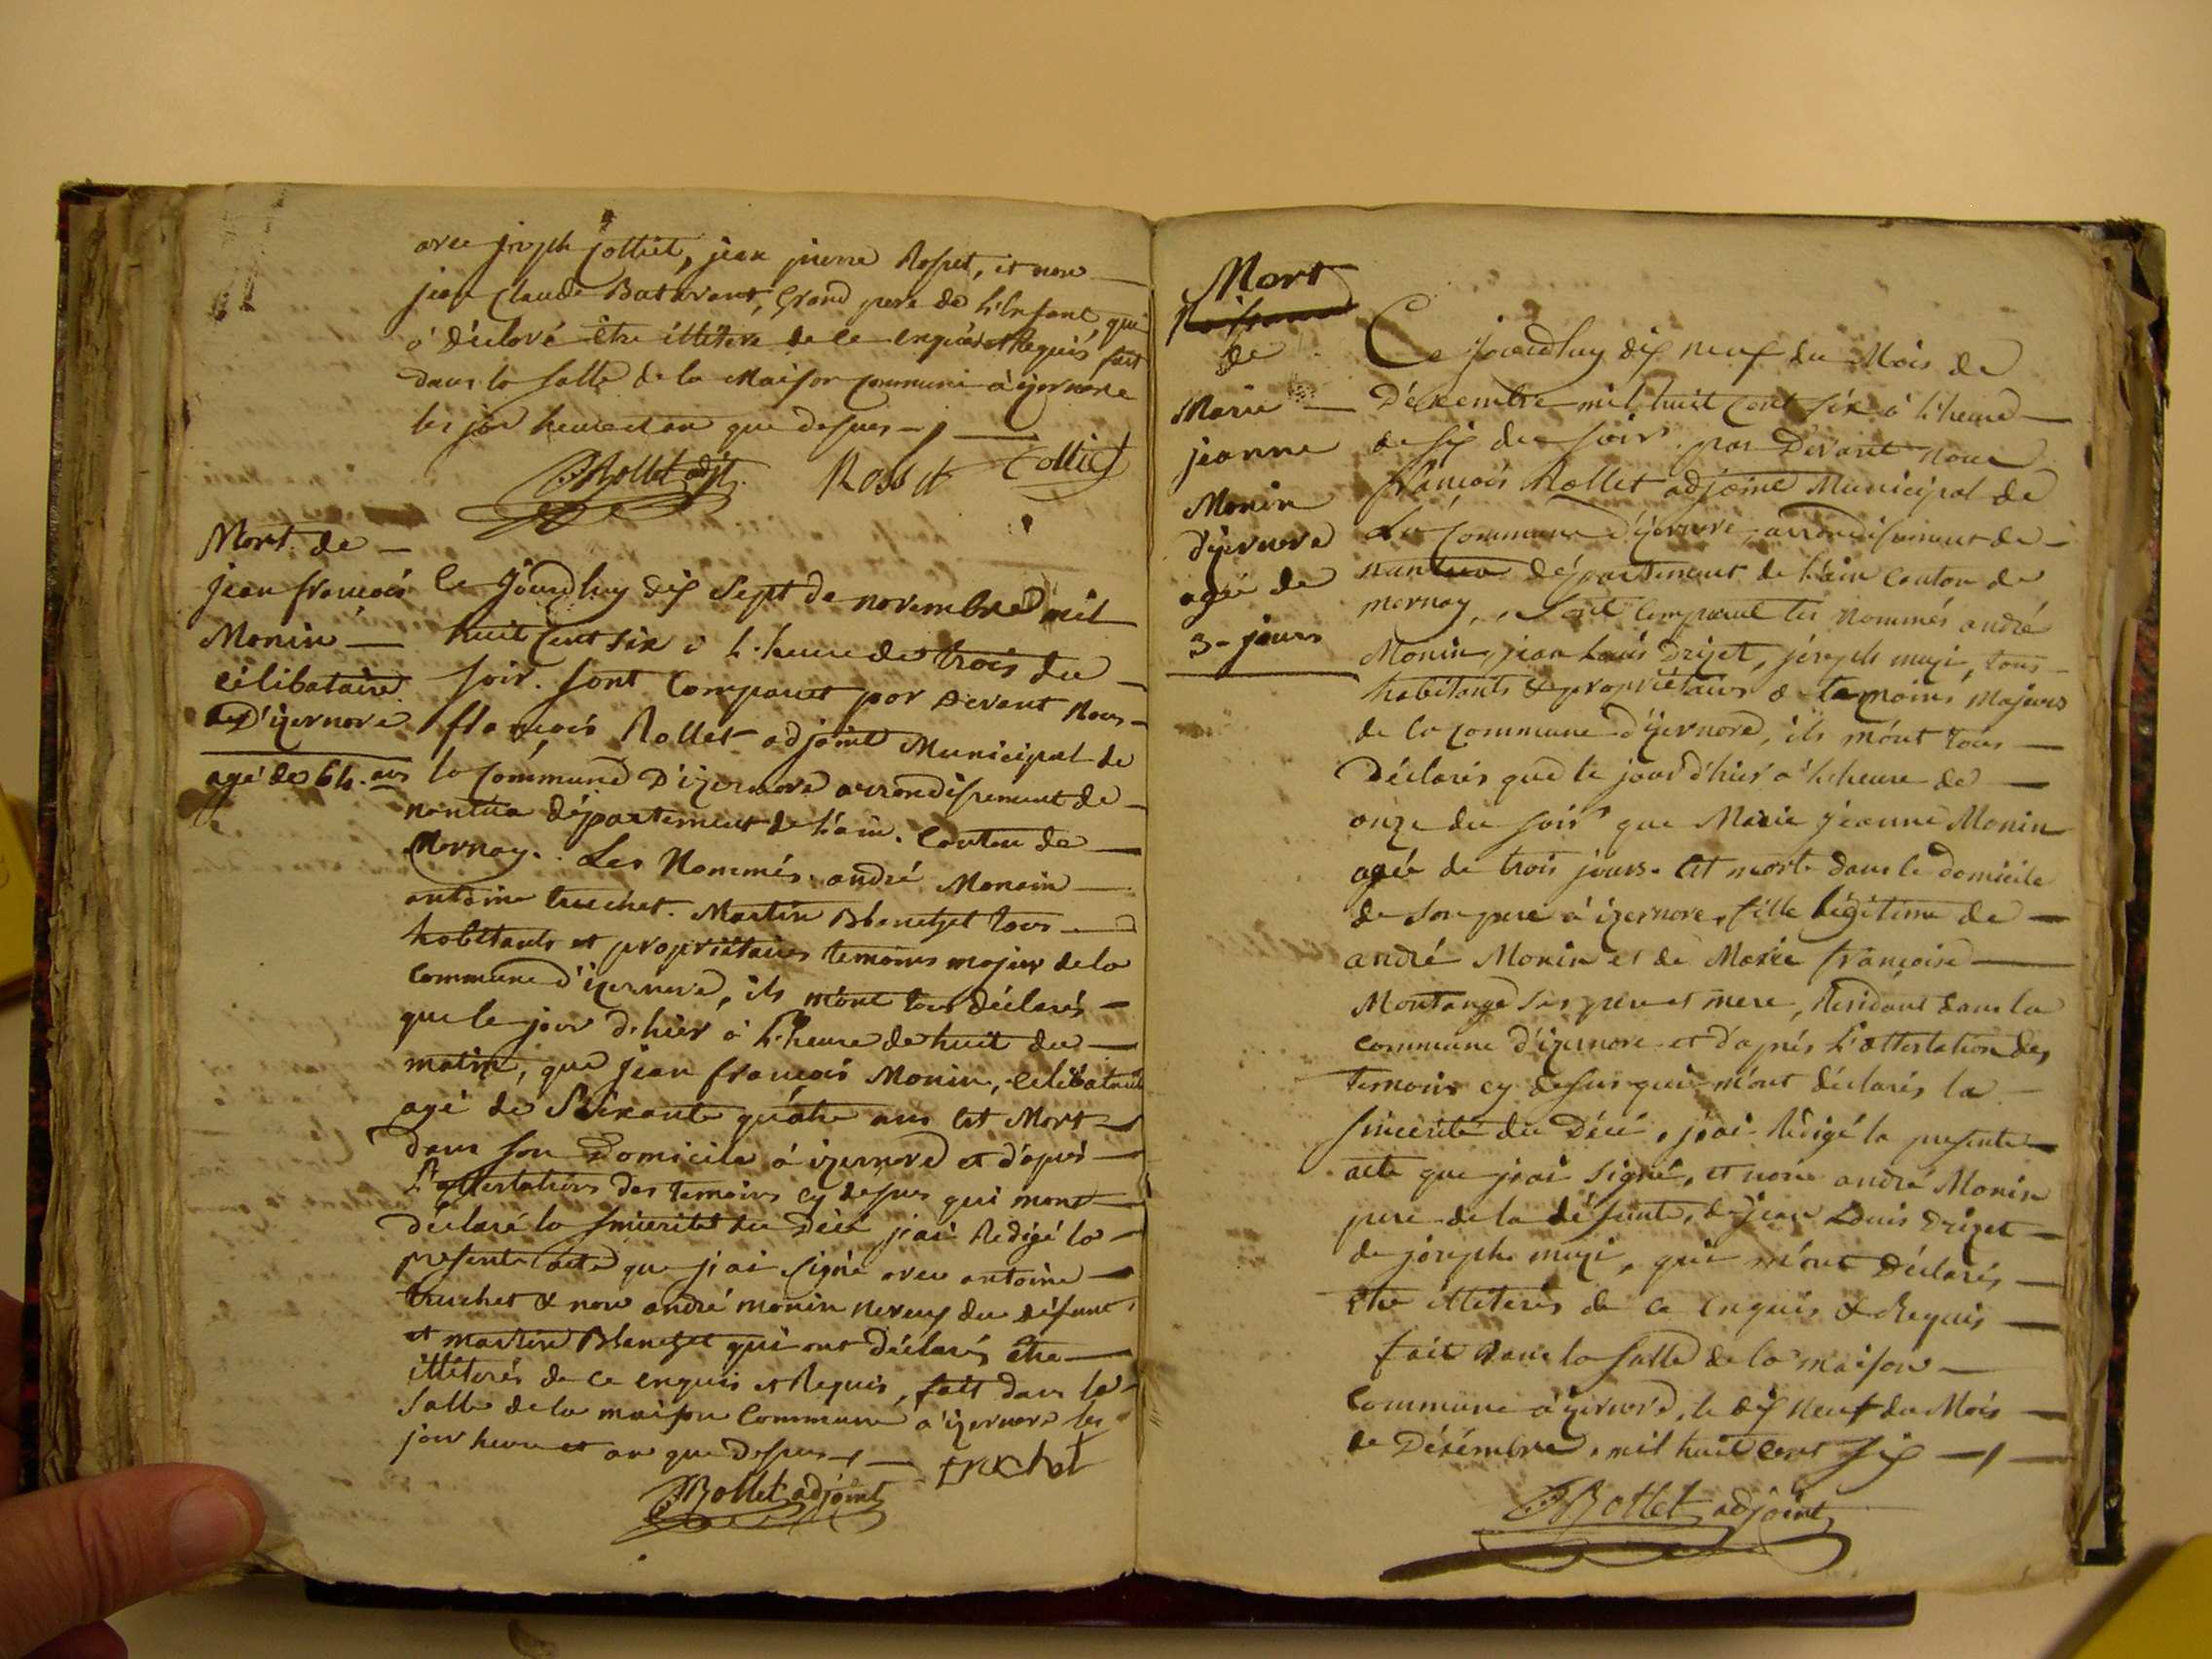 avec joseph jolliet, jean pierre Rosset, et non
jean Claude Batavant, Grand pere de l'Enfant, qui
a déclaré être illitere de ce enquis et Requis fait
dans la salle de la Maison commune a izernore
les jour heure et an que dessus
Rollet adjt. Rosset jolliet
Mort de
jean francois
Monin
célibataire
D'izernore
agé de 64. ans
Ce jourdhuy dix sept de novembre mil
huit Cent six à l'heure de trois du
soir. sont Comparut par devant Nous
francois Rollet adjoint Municipal de
la Commune D'izernore arrondissement de
nantua département de l'ain. Canton de
Mornay. Les Nommés andré Monain
antoine truchet. Martin Blanchet tous
habitants et propriétaires temoins majeur de la
Commune d'izernore, ils m'ont tous déclarés
que le jour d'hier à l'heure de huit du
matin, que jean francois Monin, célibataire
agé de Soixante quatre ans Est Mort
dans son Domicile à izernore et d'apres
l'attestations des temoins cy dessus qui mont
déclaré la sincerité du Décé j'ai Redigé la
presente acte que j'ai signé avec antoine
truchet & non andré monin neveux du défunt,
et martin Blanchet qui ont déclarés être
illiterés de ce enquis et Requis, fait dans la
salle de la maison Commune a izernore les
jour heure et an que dessus
truchet
Rollet adjoint
Mort
de
Marie
jeanne
Monin
d'izernore
agée de
3 - jours
Ce jourdhuy dix neuf du Mois de
Décembre mil huit Cent six à l'heure
de six du soir. par Devant nous
francois Rollet adjoint Municipal de
La Commune d'izernore, arrondissement de
nantua département de l'ain Canton de
mornay, Sont Comparut les nommés andré
Monin, jean Louis Drizet, joseph muzi, tous
habitants & propriétaires & temoins Majeurs
de la Commune d'izernore, ils m'ont tous
Déclarés que le jour d'hier à l'heure de
onze du soir que Marie jeanne Monin
agée de trois jours. Est morte dans le domicile
de son pere à izernore, fille légitime de
andré Monin et de Marie francoise
Montange ses pere et mere, Residant dans la
commune d'izernore et d'apres l'attestation des
temoins cy dessus qui m'ont déclarés la
sincerité du Décé, j'ai Rédigé la presente
acte que j'ai signé, et non andré Monin
pere de la défunte, de jean Louis Drizet
de joseph muzi, qui m'ont Déclarés
être illiterés de ce enquis & Requis
fait dans la salle de la maison
Commune à izernore, le dix neuf du Mois
de Décembre, mil huit Cent six
Rollet adjoint